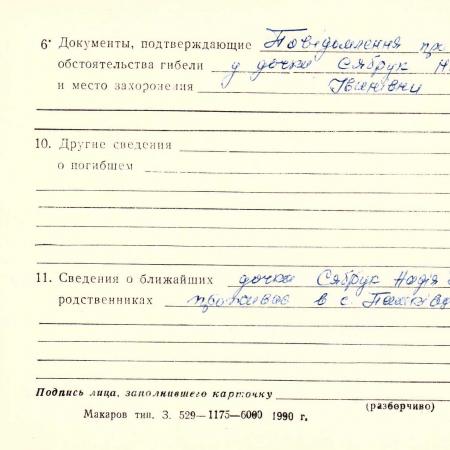 6. Документы, подтверждающие Повідомлення
обстоятельства гибели у дочки Сябрук
и место захоронения Іванівни
10. Другие сведения
о погибшем
11. Сведения о ближайших дочка Сябрук Надія
родственниках проживає в с.
Подпись лица, заполнившего карточку
(разборчиво)
Макаров тип. З. 529—1175—6000 1990 г.